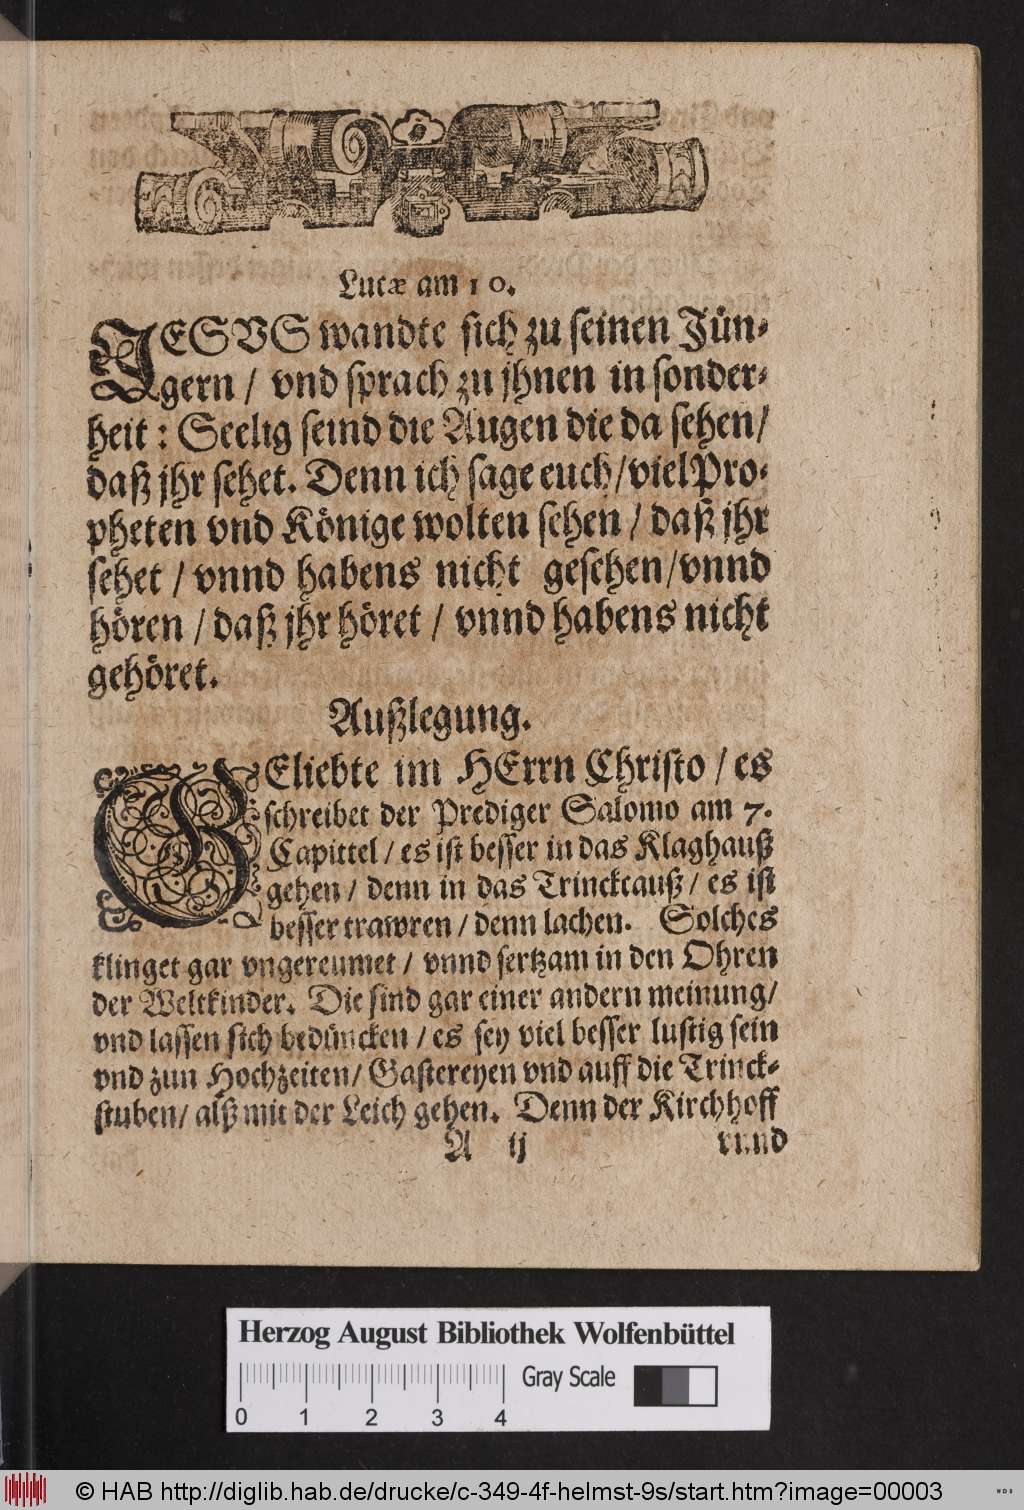 Lucæ am 10.
JESVS wandte sich zu seinen Jün-
gern / vnd sprach zu jhnen in sonder-
heit : Seelig seind die Augen die da sehen /
daß jhr sehet. Denn ich sage euch / viel Pro-
pheten vnd Könige wolten sehen / daß jhr
sehet / vnnd habens nicht gesehen / vnnd
hören / daß jhr höret / vnnd habens nicht
gehöret.
Außlegung.
GEliebte im HErrn Christo / es
schreibet der Prediger Salomo am 7.
Capittel / es ist besser in das Klaghauß
gehen / denn in das Trinckcauß / es ist
besser trawren / denn lachen. Solches
klinget gar vngereumet / vnnd sertzam in den Ohren
der Weltkinder. Die sind gar einer andern meinung /
vnd lassen sich bedüncken / es sey viel besser lustig sein
vnd zun Hochzeiten / Gastereyen vnd auff die Trinck-
stuben / alß mit der Leich gehen. Denn der Kirchhoff
A ij vnnd
Herzog August Bibliothek Wolfenbüttel
Gray Scale
0 1 2 3 4
© HAB http://diglib.hab.de/drucke/c-349-4f-helmst-9s/start.htm?image=00003